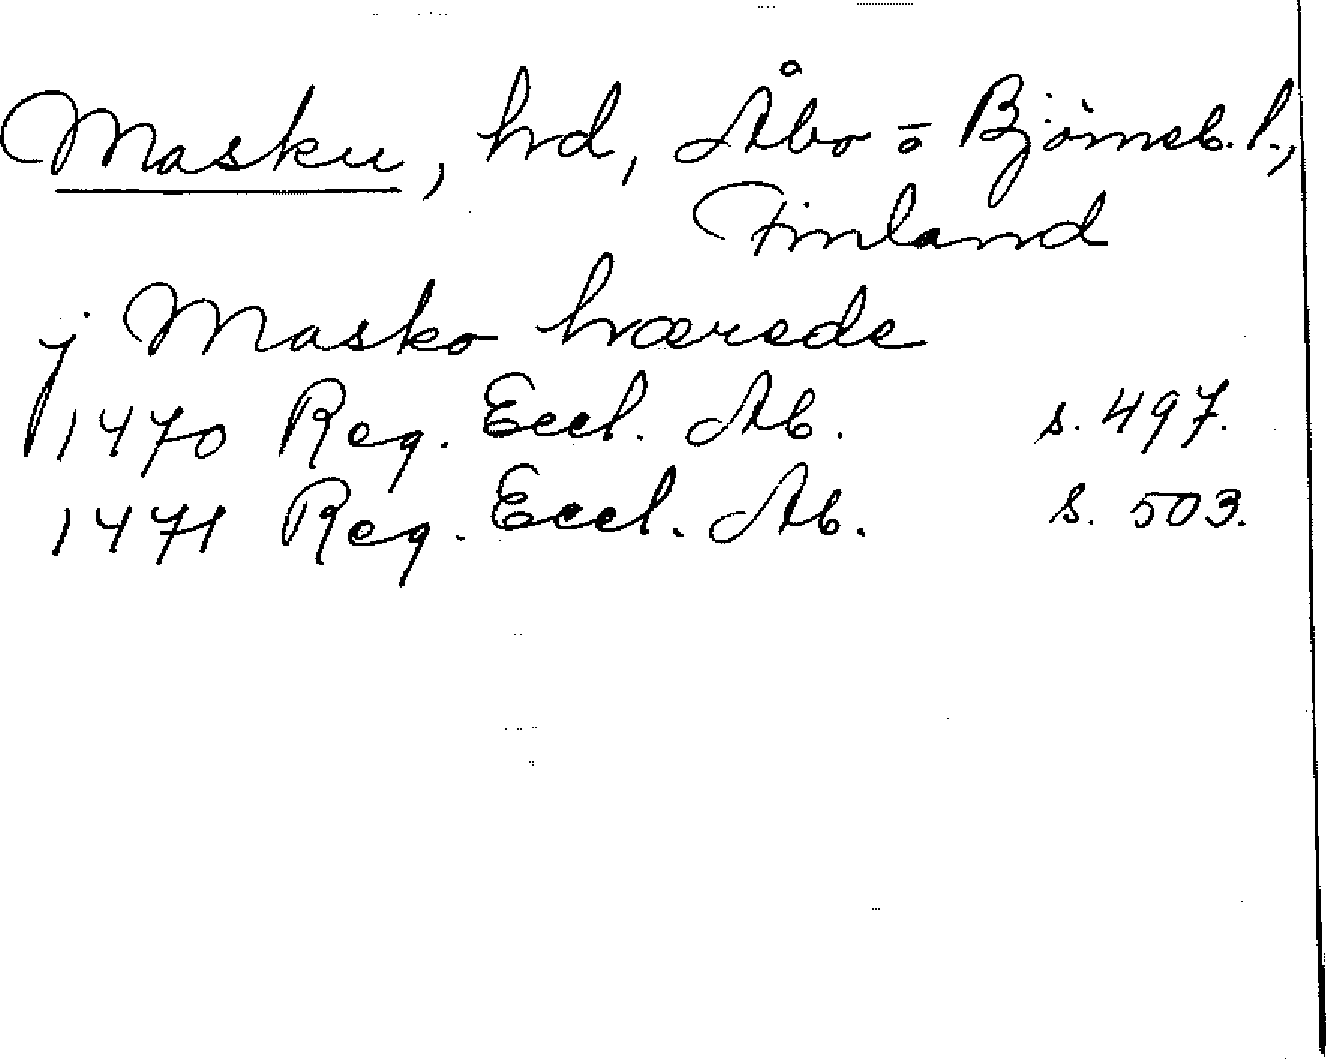 Masku, hd, Åbo o Björneb. l.,
Finland
j Masko hærede
1470 Reg. Eccl. Ab. s. 497.
1471 Reg. Eccl. Ab. s. 503.